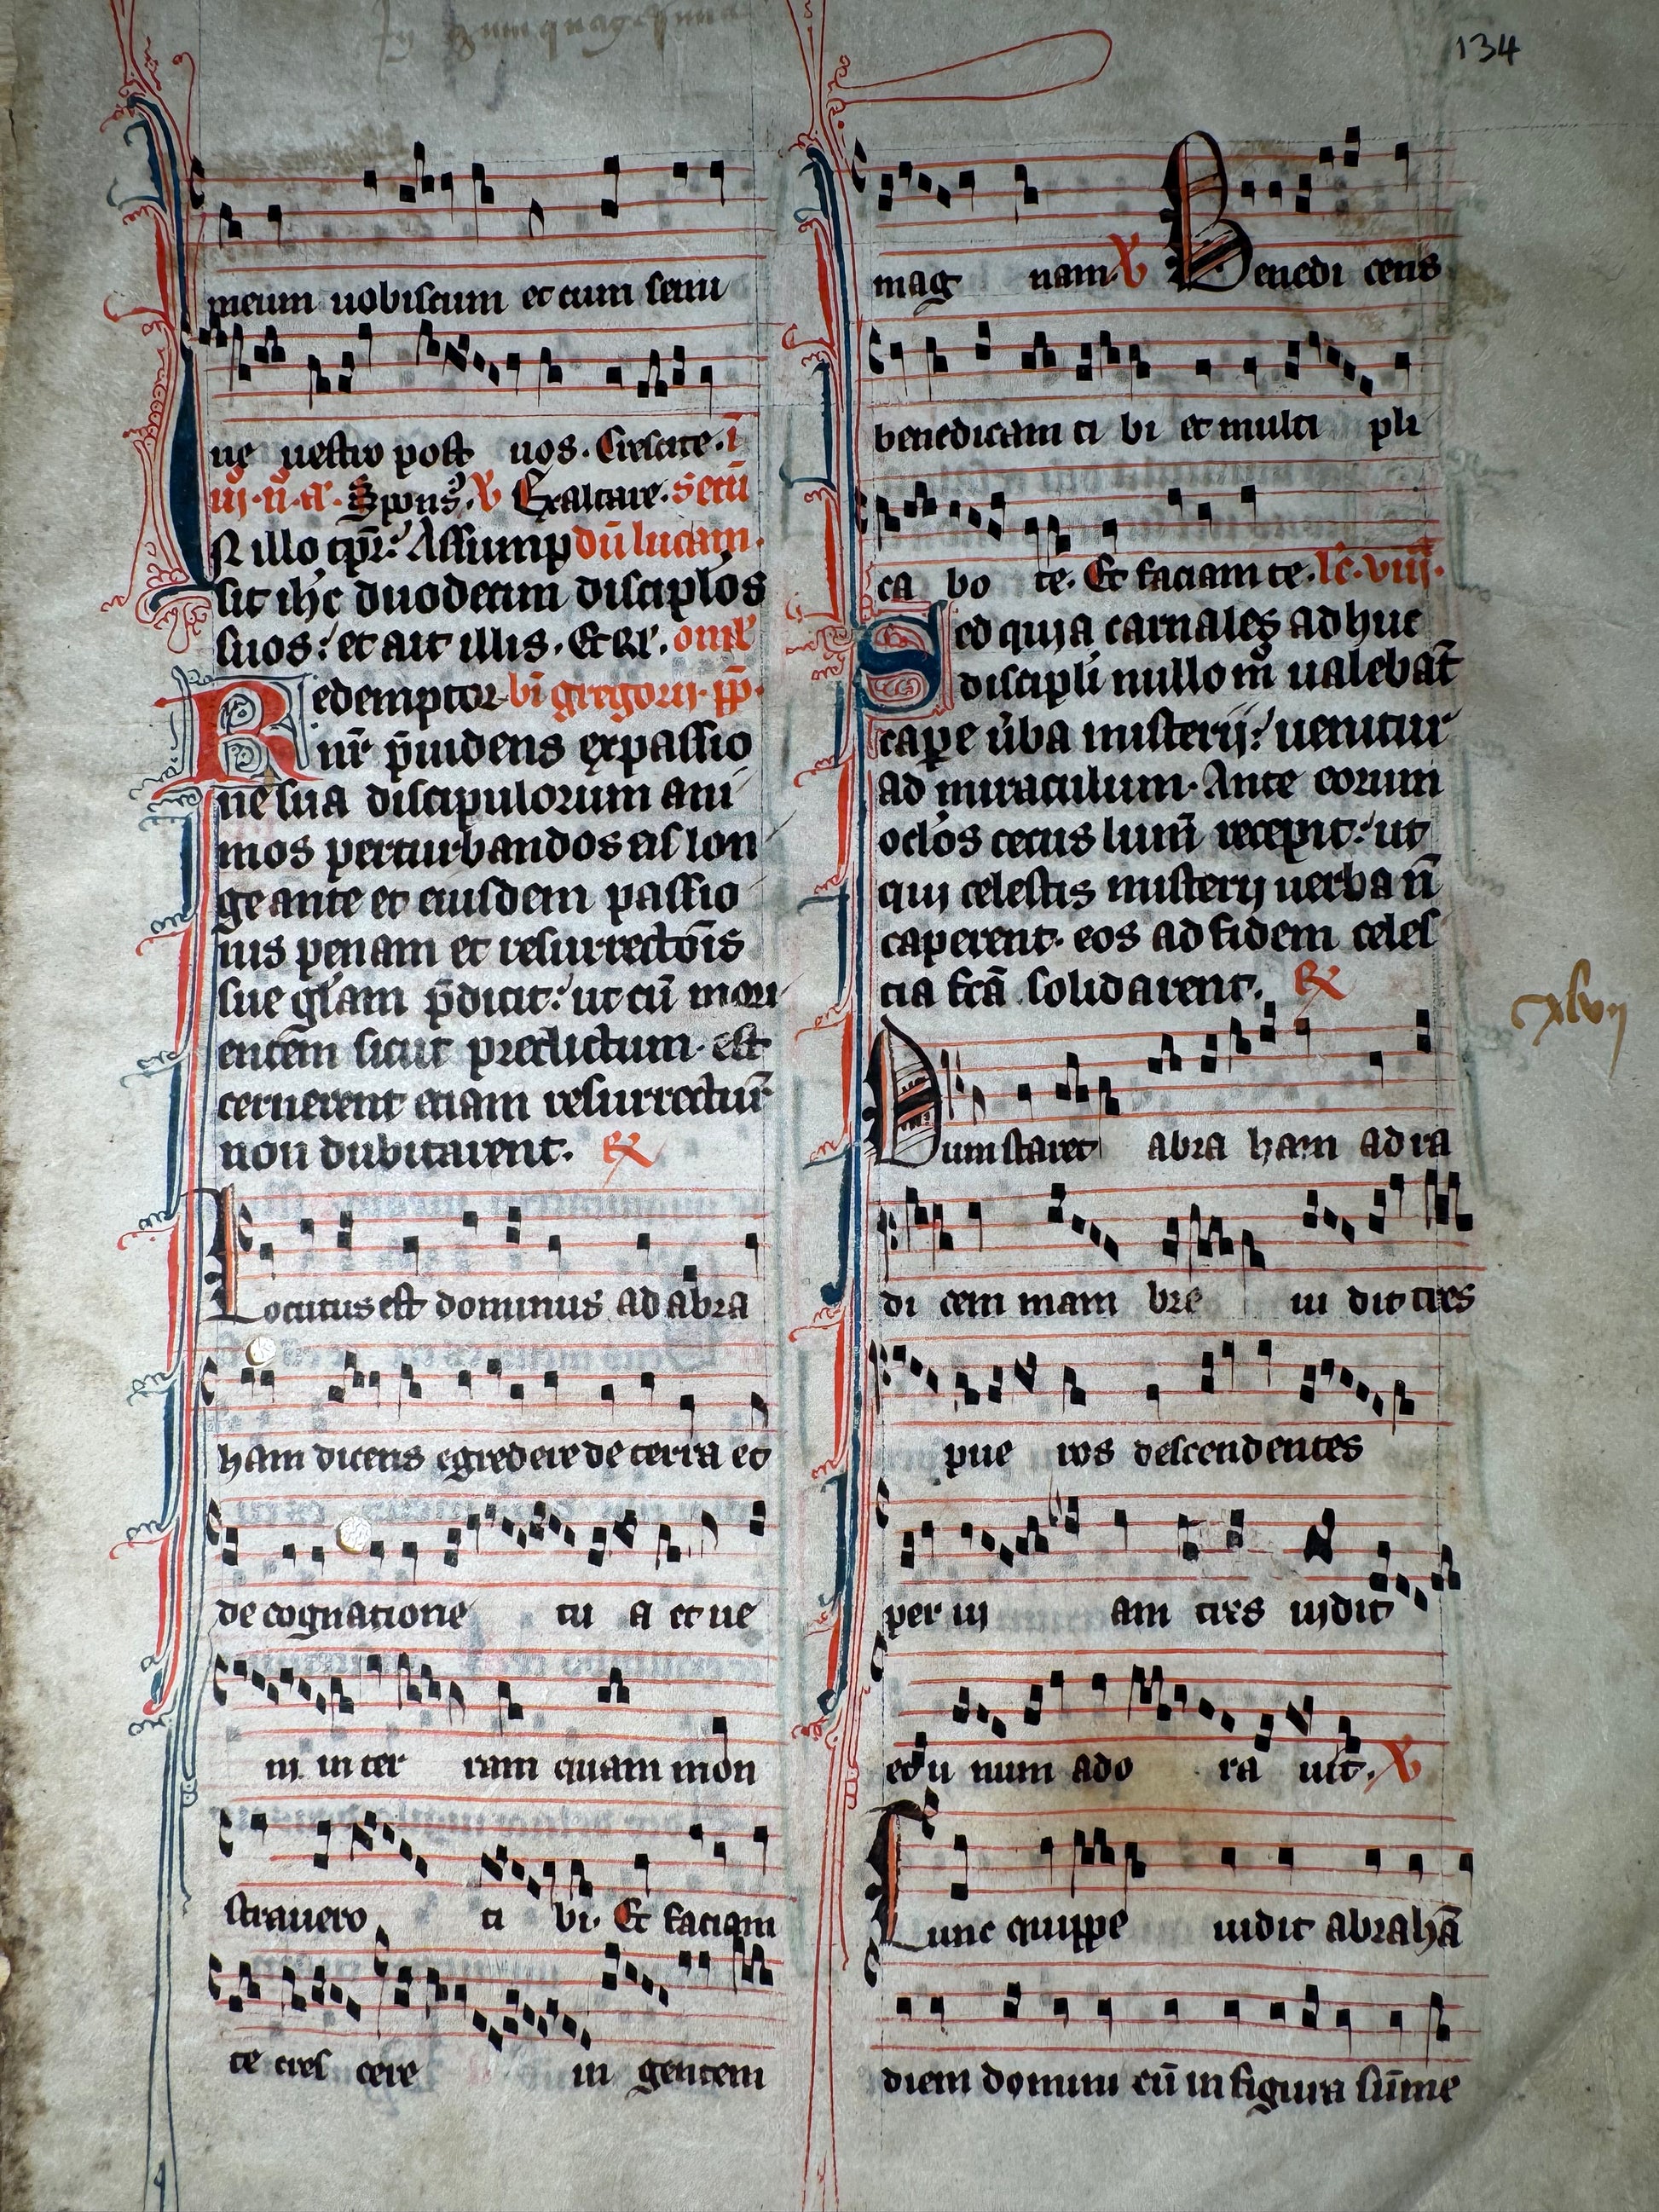 In quinquagesima
134
meum uobiscum et cum semi
ne uestro post uos. Crescite. i
iij. n. a. Spons. V Exaltare. Secu
N illo tpr: Assump dū lucam.
sit ihc duodecim disciplos
suos: et ait illis. Et Rl. omel
Redemptor bi gregorij. pp.
nr p̄uidens ex passio
ne sua discipulorum ani
mos perturbandos eis lon
ge ante et eiusdem passio
nis penam et resurrectōis
sue glam p̄dicit: ut cū mori
entem sicut predictum est
cernerent etiam resurrectur̄
non dubitarent. R
Locutus est dominus ad abra
ham dicens egredere de terra et
de cognatione tu a et ue
ni in ter ram quam mon
strauero ti bi. Et faciam
te cres cere in gentem
mag nam. V Benedi cens
benedicam ti bi et multi pli
ca bo te. Et faciam te. lc. viii.
Sed quia carnales adhuc
discipli nullo m̊ ualebāt
cape u̇ba misterij: uenitur
ad miraculum. Ante eorum
oclos cecus lum̄ recepit: ut
qui celestis misterij uerba n̄
caperent. eos ad fidem celes
tia fcā solidarent. R
xlvij
Dum staret abra ham ad ra
di cem mam bre ui dit tres
pue ros descendentes
per ui am tres uidit
et u num ado ra uit. V
Tunc quippe uidit abrahā
diem domini cū in figura sūme